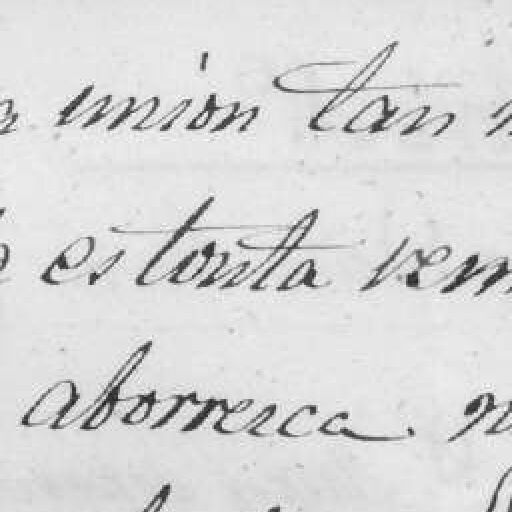 union tan
es tonta
aborresca